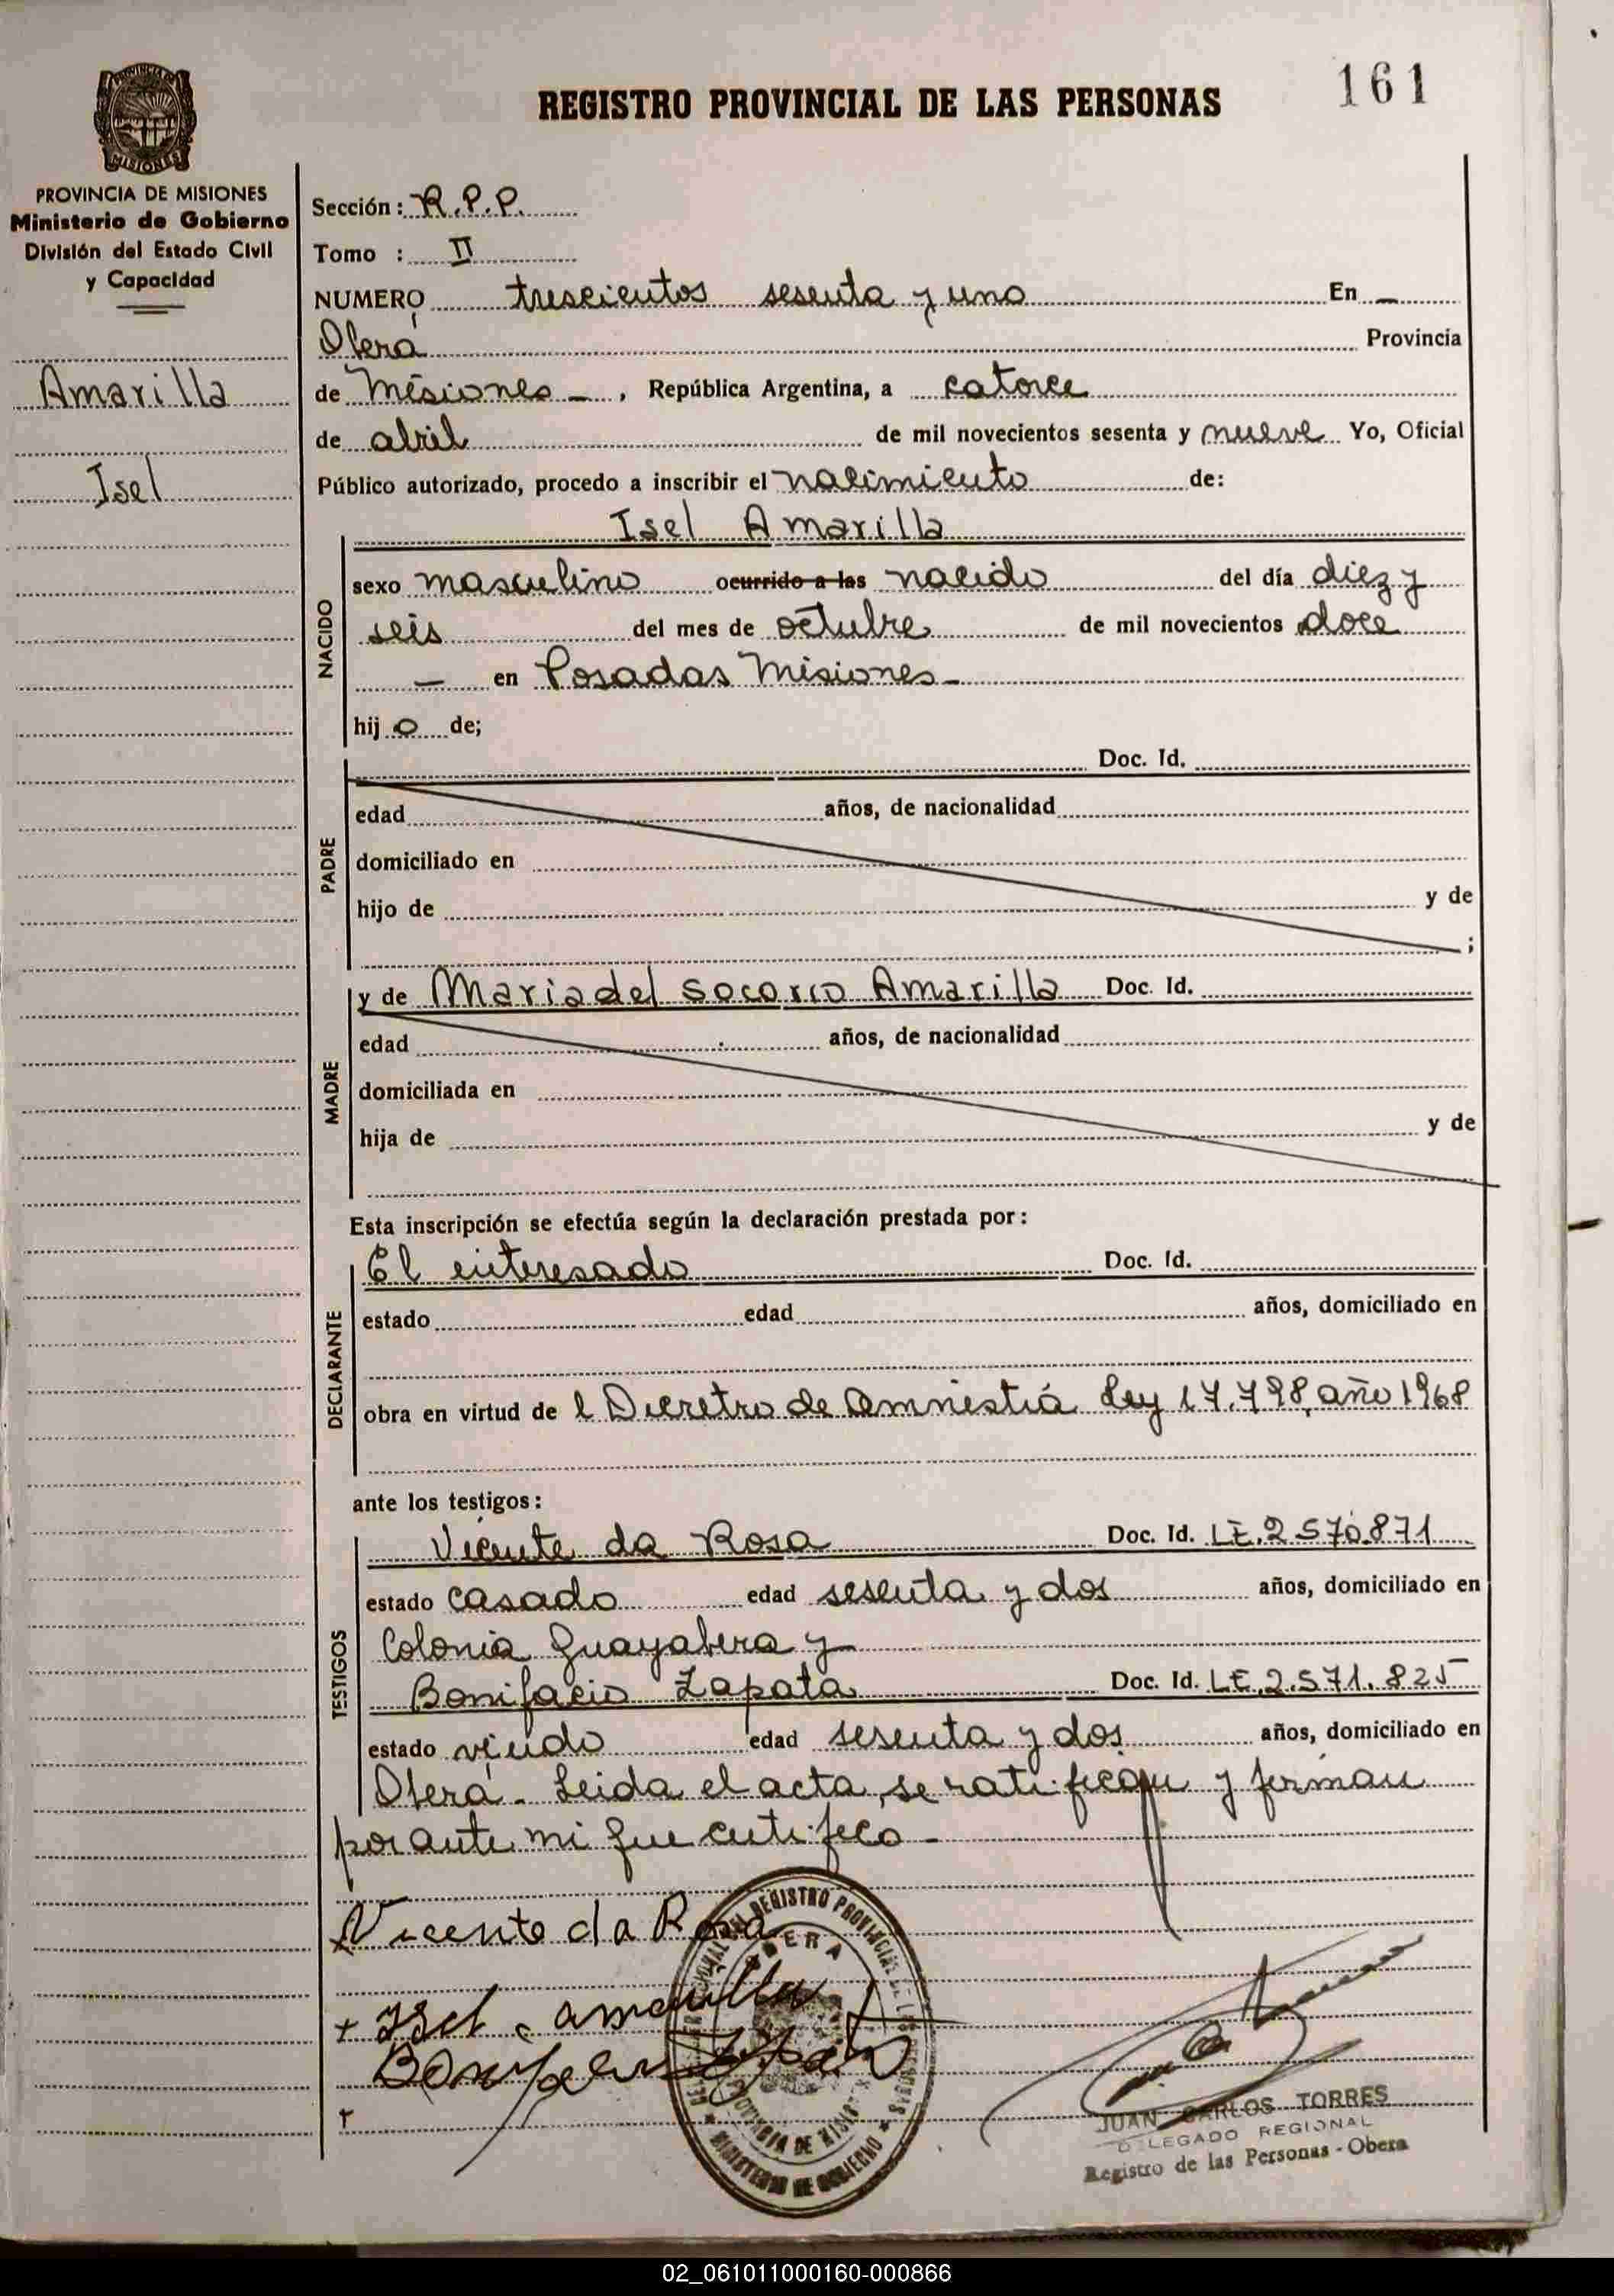 161
REGISTRO PROVINCIAL DE LAS PERSONAS
PROVINCIA DE
MISIONES
PROVINCIA DE MISIONES
Ministerio de Gobierno
División del Estado Civil
y Capacidad
Amarilla
Isel
Sección: R.P.P.
Tomo : II
NUMERO trescientos sesenta y uno En —
Oberá Provincia
de Misiones — , República Argentina, a catorce
de abril de mil novecientos sesenta y nueve Yo, Oficial
Público autorizado, procedo a inscribir el nacimiento de:
Isel Amarilla
NACIDO
sexo masculino ocurrido a las nacido del día diez y
seis del mes de octubre de mil novecientos doce
— en Posadas Misiones —
hijo de;
PADRE
Doc. Id.
edad años, de nacionalidad
domiciliado en
hijo de y de
;
MADRE
y de Maria del Socorro Amarilla Doc. Id.
edad años, de nacionalidad
domiciliada en
hija de y de
Esta inscripción se efectúa según la declaración prestada por:
DECLARANTE
El interesado Doc. Id.
estado edad años, domiciliado en
obra en virtud de l Decretro de Amnestiá Ley 17.798, año 1968
ante los testigos:
TESTIGOS
Vicente da Rosa Doc. Id. LE.2570.871
estado casado edad sesenta y dos años, domiciliado en
Colonia Guayabera y
Bonifacio Zapata Doc. Id. LE.2.571.825
estado viudo edad sesenta y dos años, domiciliado en
Oberá. Leida el acta, se ratifican y firman
por ante mi que certifico —
Vicente da Rosa
+ Isel amarilla
Bonifacio Zapata
REGISTRO PROVINCIAL DE LAS PERSONAS
OBERA
PROVINCIA DE MISIONES
MINISTERIO DE GOBIERNO
JUAN CARLOS TORRES
DELEGADO REGIONAL
Registro de las Personas - Obera
02_061011000160-000866